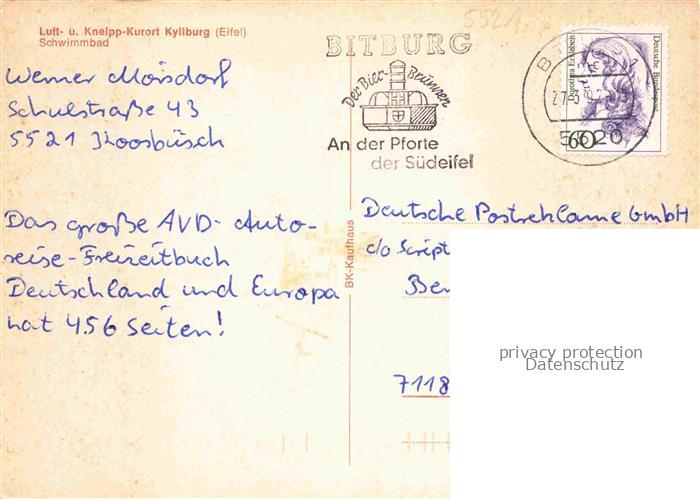 Luft- u. Kneipp-Kurort Kyllburg (Eifel)
Schwimmbad
5521
BITBURG
Der Bier-Brunnen
An der Pforte
der Südeifel
5520
Dorothea Erxleben
Deutsche Bundespost
60
Werner Morsdorf
Schulstraße 43
5521
Das große AVD-Auto-
reise-Freizeitbuch
Deutschland und Europa
hat 456 Seiten!
BK-Kaufhaus
Deutsche Postreklame GmbH
c/o Script
Ber
7118
privacy protection
Datenschutz